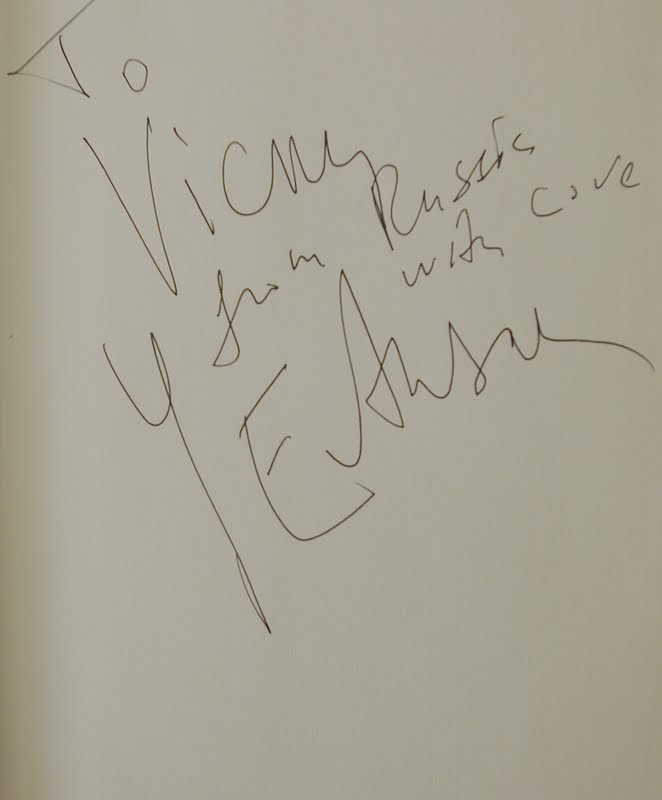 To
Vicky
from Russia
with Love